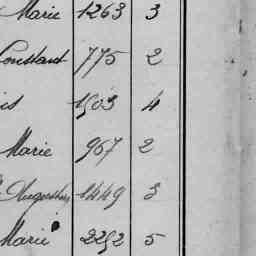 Marie 1263 3
Constant 775 2
is 1503 4
Marie 967 2
1449 3
Marie 2252 5